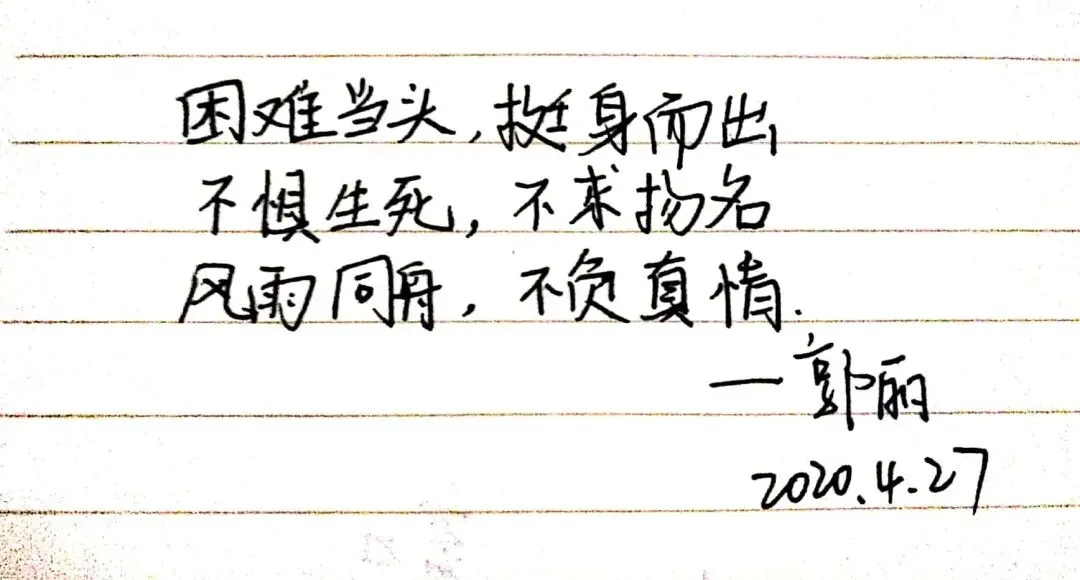 困难当头,挺身而出
不惧生死,不求扬名
风雨同舟,不负真情.
—郭丽
2020.4.27